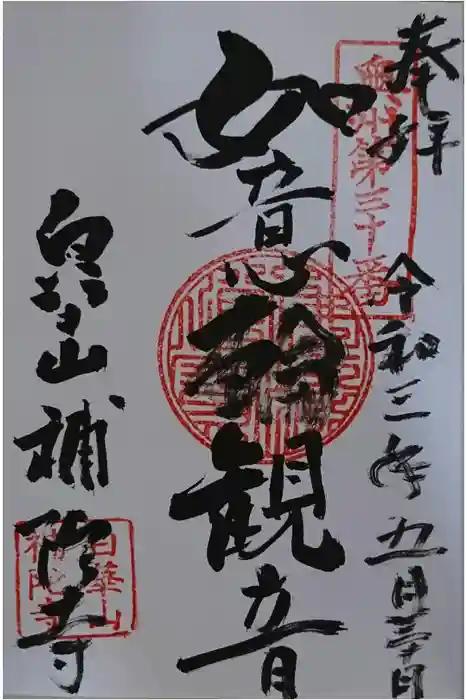 奉拝
奥州第三十番
令和三年五月三十日
如意輪観音
白華山補陀寺
白華山
補陀寺